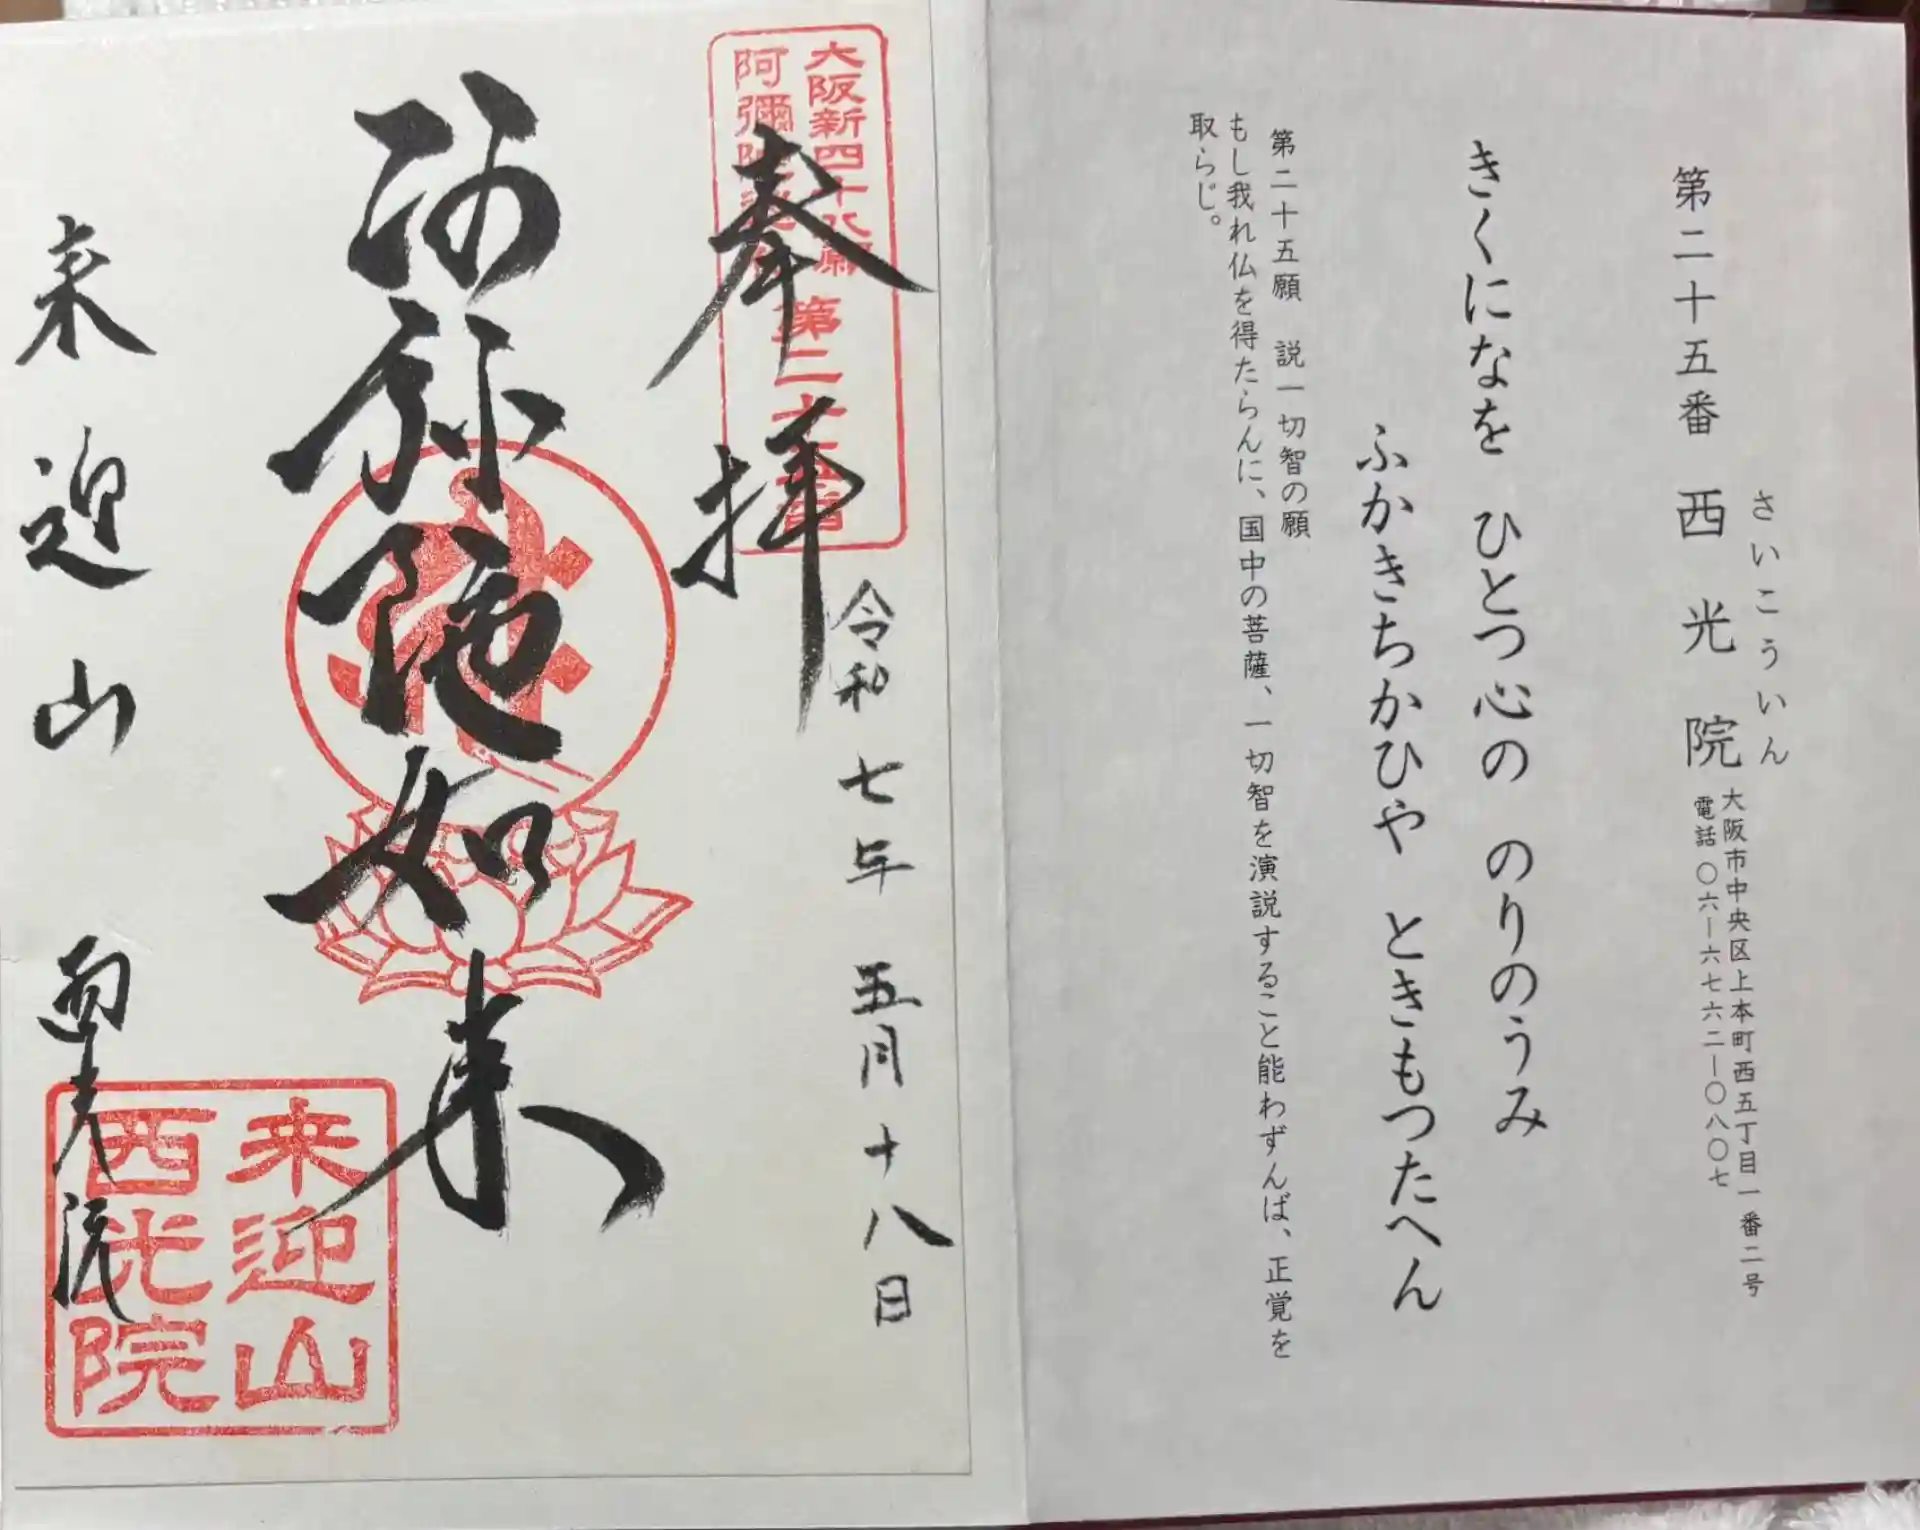 第二十五番 西光院
さいこういん
大阪市中央区上本町西五丁目一番二号
電話〇六ー六七六二ー〇八〇七
きくになを ひとつ心の のりのうみ
ふかきちかひや ときもつたへん
第二十五願 説一切智の願
もし我れ仏を得たらんに、国中の菩薩、一切智を演説すること能わずんば、正覚を
取らじ。
奉拝
大阪新四十八願
阿彌陀
第二十五番
令和七年 五月十八日
阿弥陀如来
来迎山 西光院
来迎山
西光院